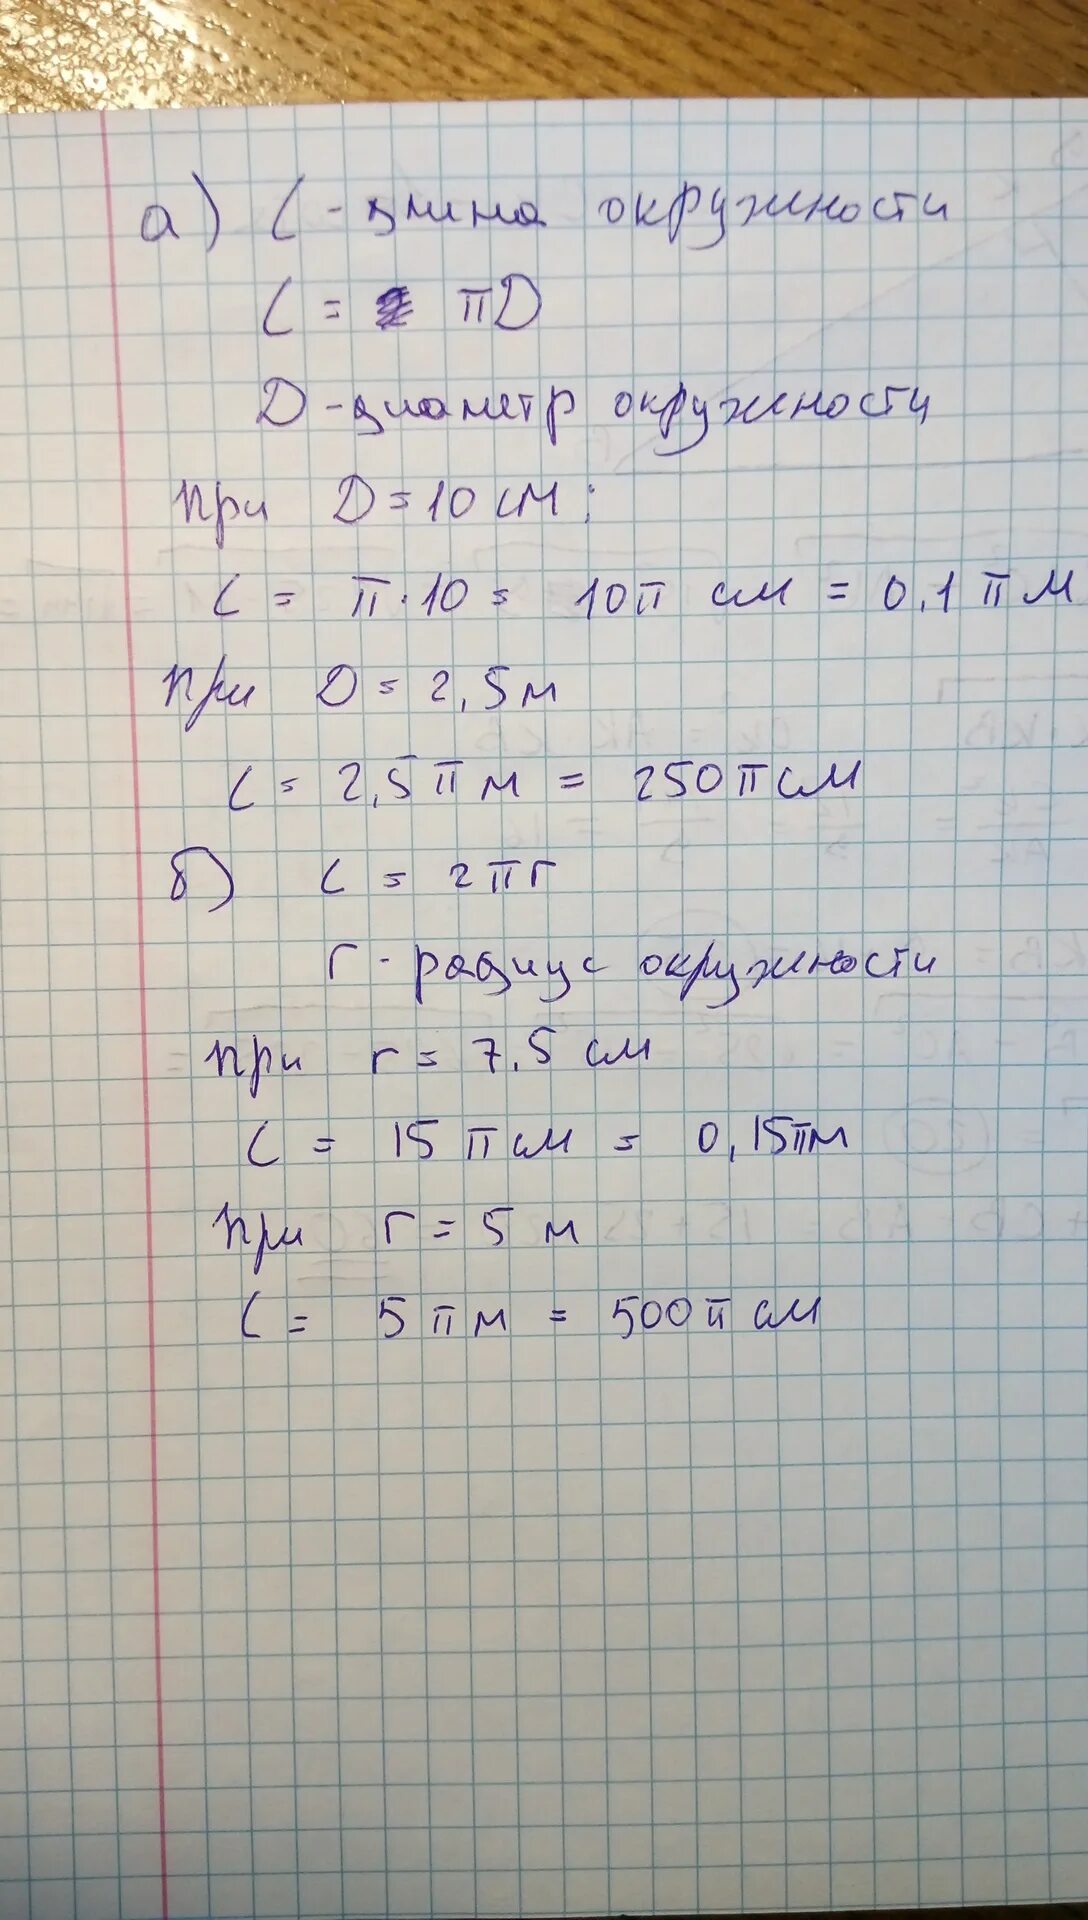 а) C - длина окружности
C = πD
D - диаметр окружности
при D = 10 см:
C = π·10 = 10π см = 0,1 π м
при D = 2,5 м
C = 2,5 π м = 250 π см
б) C = 2πr
r - радиус окружности
при r = 7,5 см
C = 15 π см = 0,15π м
при r = 5 м
C = 5 π м = 500 π см